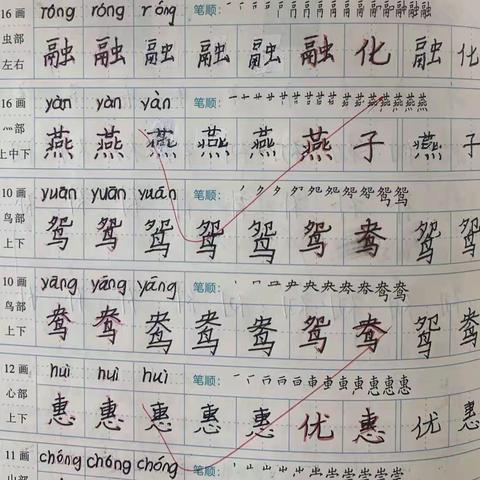 16 画 róng róng róng 笔顺:
虫部
左右
融 融 融 融 融 融 化 融 化
16 画 yàn yàn yàn 笔顺:
灬部
上中下
燕 燕 燕 燕 燕 燕 子 燕 子
10 画 yuān yuān yuān 笔顺:
鸟部
上下
鸳 鸳 鸳 鸳 鸳 鸳 鸯 鸳 鸯
10 画 yāng yāng yāng 笔顺:
鸟部
上下
鸯 鸯 鸯 鸯 鸯 鸳 鸯 鸳 鸯
12 画 huì huì huì 笔顺:
心部
上下
惠 惠 惠 惠 惠 优 惠 优 惠
11 画 chóng chóng chóng 笔顺:
山部